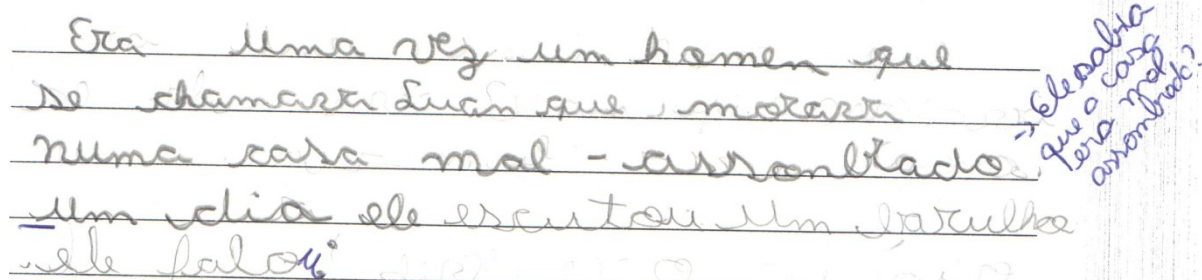 Era uma vez um homen que
se chamava Luan que morava
numa casa mal - assonbrado.
um dia ele escutou um barulho
ele falou:
→ Ele sabia
que a casa
era mal
assombrada?